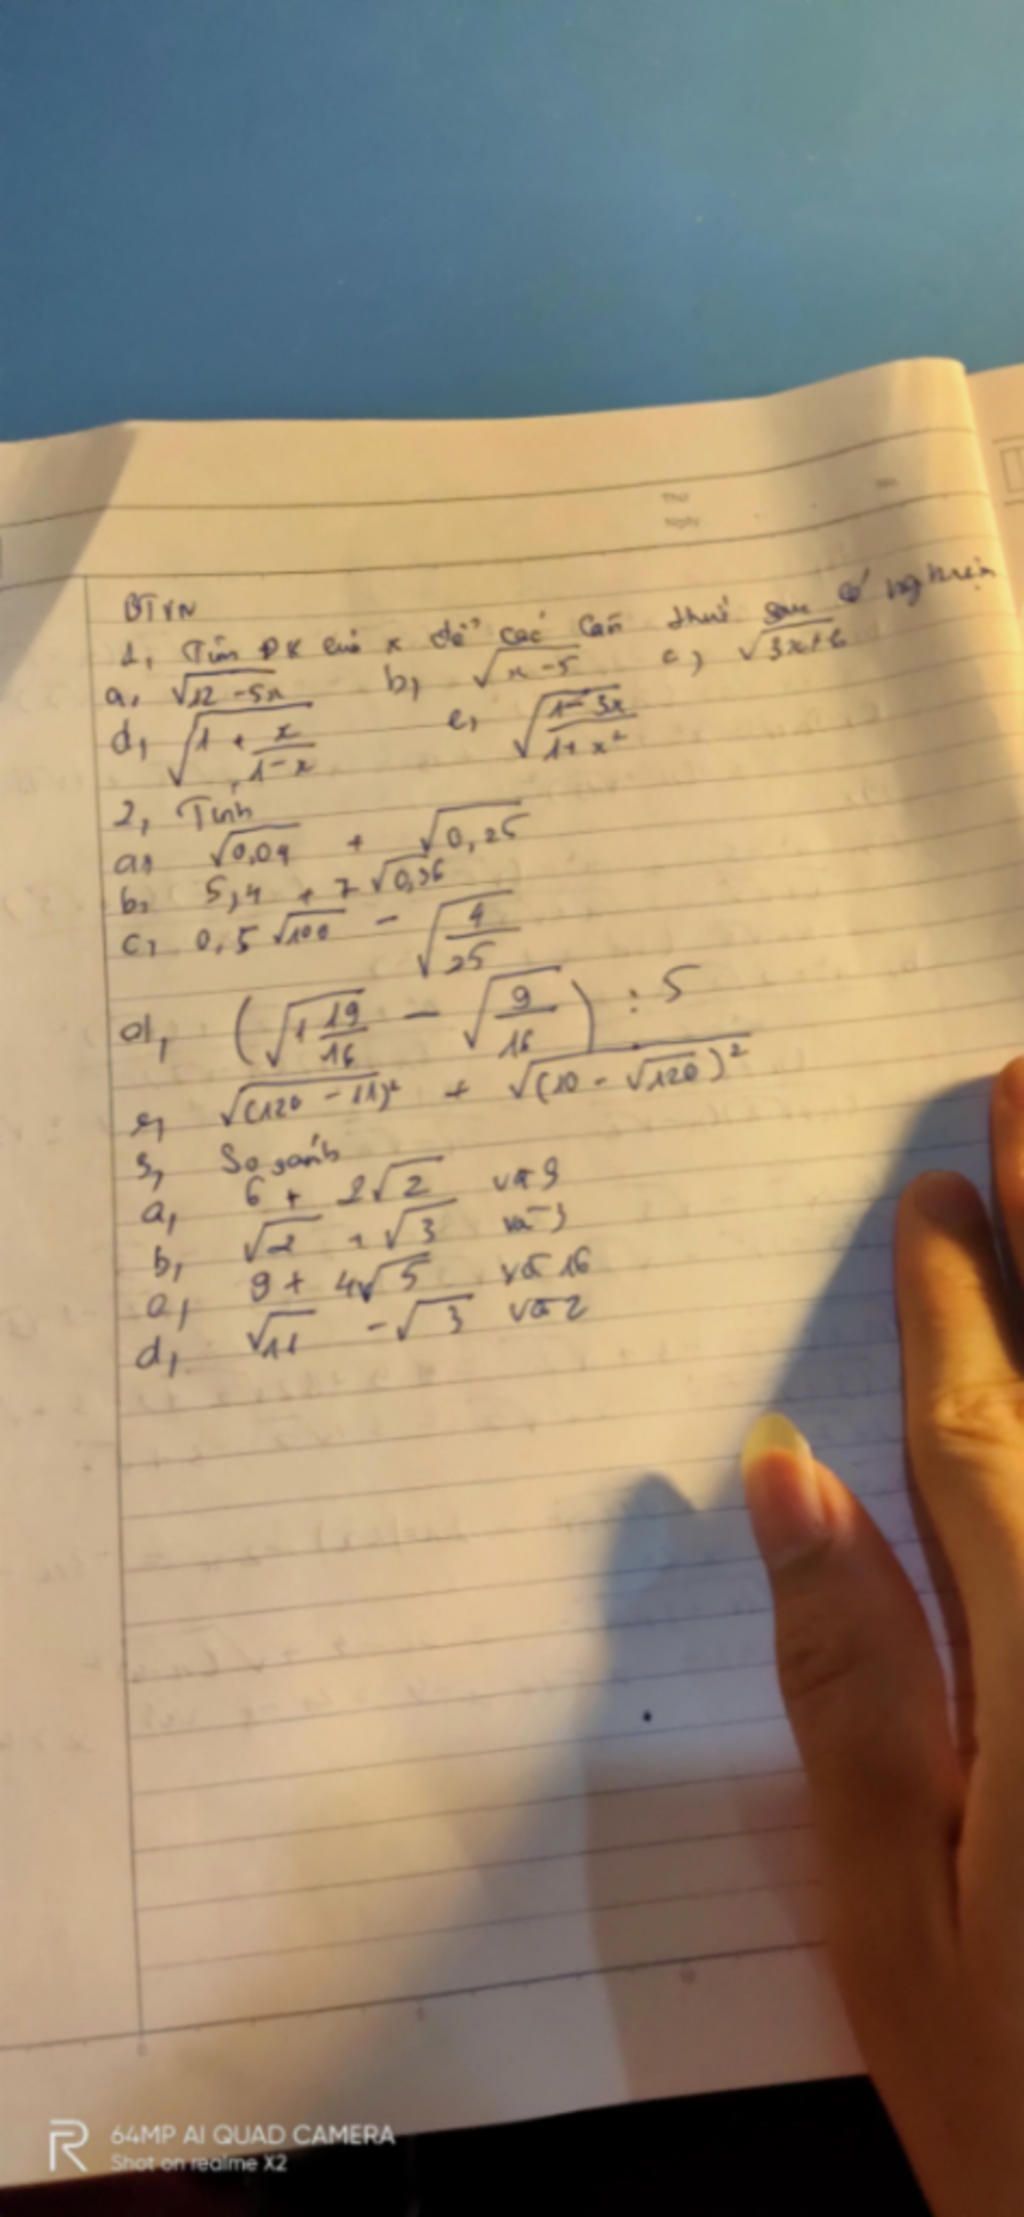 Thứ
Ngày No.
BTVN
1, Tìm ĐK của x để các căn thức sau có nghiệm
a, √12 - 5x b, √x - 5 c, √3x + 6
d, √1 + x/1 - x e, √1 - 3x/1 + x²
2, Tính
a, √0,09 + √0,25
b, 5,4 + 7√0,36
c, 0,5 √100 - √4/25
d, (√1 19/16 - √9/16) : 5
e, √(√120 - 11)² + √(10 - √120)²
3, So sánh
a, 6 + 2√2 và 9
b, √2 + √3 và 3
c, 9 + 4√5 và 16
d, √11 - √3 và 2
64MP AI QUAD CAMERA
Shot on realme X2